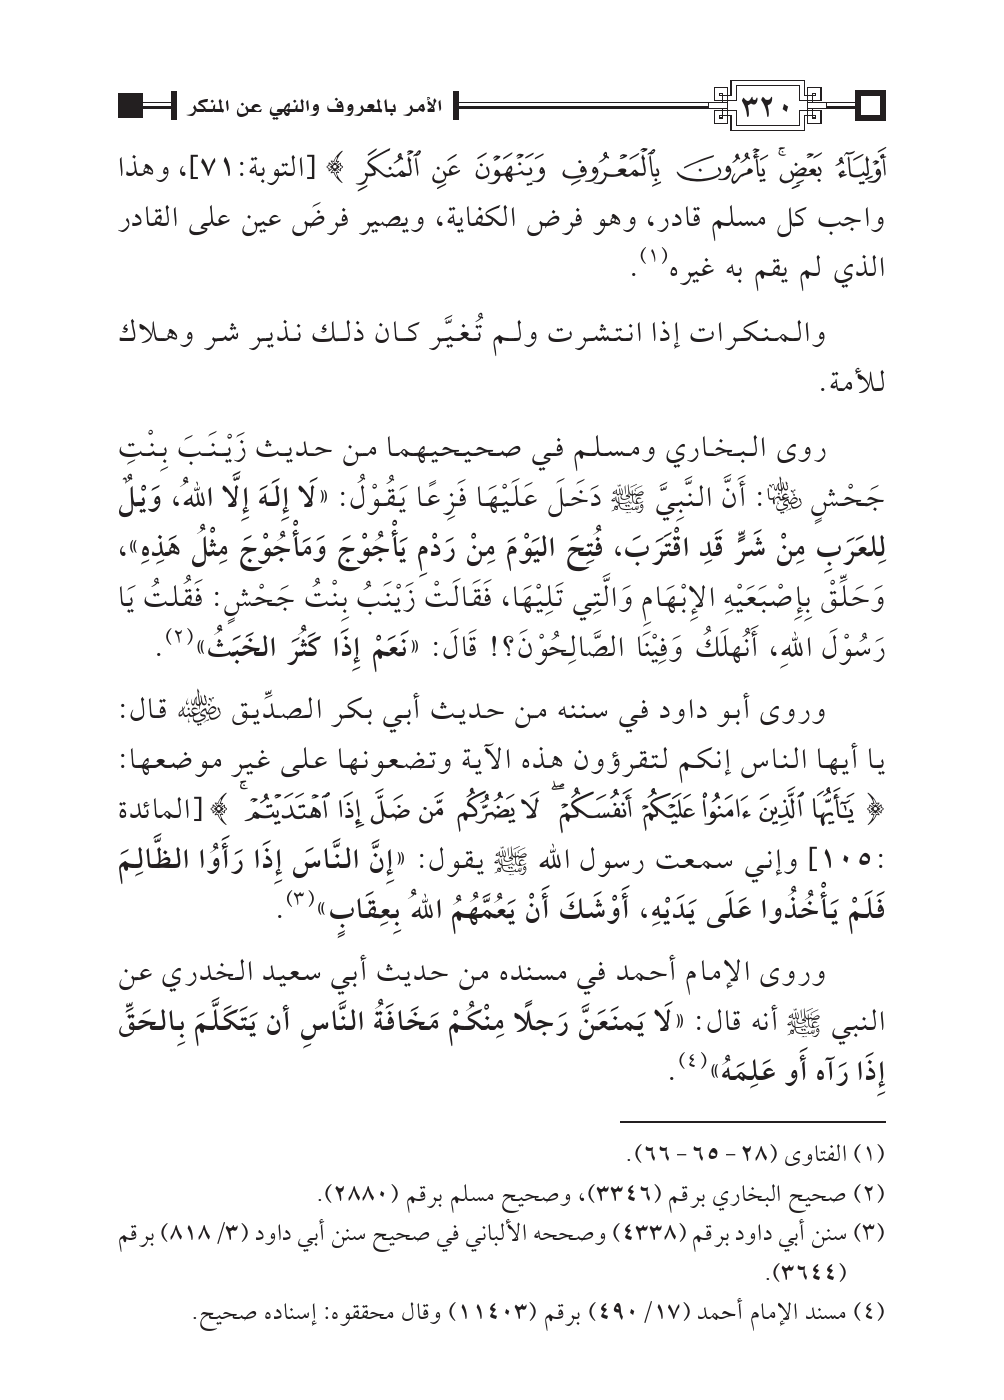 ٣٢٠ الأمر بالمعروف والنهي عن المنكر
أَوْلِيَآءُ بَعْضٍۚ يَأْمُرُونَ بِٱلْمَعْرُوفِ وَيَنْهَوْنَ عَنِ ٱلْمُنكَرِ ﴾ [التوبة:٧١]، وهذا
واجب كل مسلم قادر، وهو فرض الكفاية، ويصير فرضَ عين على القادر
الذي لم يقم به غيره(١).
والمنكرات إذا انتشرت ولم تُغيَّر كان ذلك نذير شر وهلاك
للأمة.
روى البخاري ومسلم في صحيحيهما من حديث زَيْنَبَ بِنْتِ
جَحْشٍ رضي الله عنها: أَنَّ النَّبِيَّ ﷺ دَخَلَ عَلَيْهَا فَزِعًا يَقُوْلُ: «لَا إِلَهَ إِلَّا اللهُ، وَيْلٌ
لِلعَرَبِ مِنْ شَرٍّ قَدِ اقْتَرَبَ، فُتِحَ اليَوْمَ مِنْ رَدْمِ يَأْجُوْجَ وَمَأْجُوْجَ مِثْلُ هَذِهِ»،
وَحَلِّقْ بِإِصْبَعَيْهِ الإِبْهَامِ وَالَّتِي تَلِيْهَا، فَقَالَتْ زَيْنَبُ بِنْتُ جَحْشٍ: فَقُلتُ يَا
رَسُوْلَ اللهِ، أَنُهلَكُ وَفِيْنَا الصَّالِحُوْنَ؟! قَالَ: «نَعَمْ إِذَا كَثُرَ الخَبَثُ»(٢).
وروى أبو داود في سننه من حديث أبي بكر الصدِّيق رضي الله عنه قال:
يا أيها الناس إنكم لتقرؤون هذه الآية وتضعونها على غير موضعها:
﴿ يَٰٓأَيُّهَا ٱلَّذِينَ ءَامَنُوا۟ عَلَيْكُمْ أَنفُسَكُمْۖ لَا يَضُرُّكُم مَّن ضَلَّ إِذَا ٱهْتَدَيْتُمْۚ ﴾ [المائدة
:١٠٥] وإني سمعت رسول الله ﷺ يقول: «إِنَّ النَّاسَ إِذَا رَأَوُا الظَّالِمَ
فَلَمْ يَأْخُذُوا عَلَى يَدَيْهِ، أَوْشَكَ أَنْ يَعُمَّهُمُ اللهُ بِعِقَابٍ»(٣).
وروى الإمام أحمد في مسنده من حديث أبي سعيد الخدري عن
النبي ﷺ أنه قال: «لَا يَمنَعَنَّ رَجلًا مِنْكُمْ مَخَافَةُ النَّاسِ أن يَتَكَلَّمَ بِالحَقِّ
إِذَا رَآه أَو عَلِمَهُ»(٤).
(١) الفتاوى (٢٨ - ٦٥ - ٦٦).
(٢) صحيح البخاري برقم (٣٣٤٦)، وصحيح مسلم برقم (٢٨٨٠).
(٣) سنن أبي داود برقم (٤٣٣٨) وصححه الألباني في صحيح سنن أبي داود (٣/ ٨١٨) برقم
(٣٦٤٤).
(٤) مسند الإمام أحمد (١٧/ ٤٩٠) برقم (١١٤٠٣) وقال محققوه: إسناده صحيح.